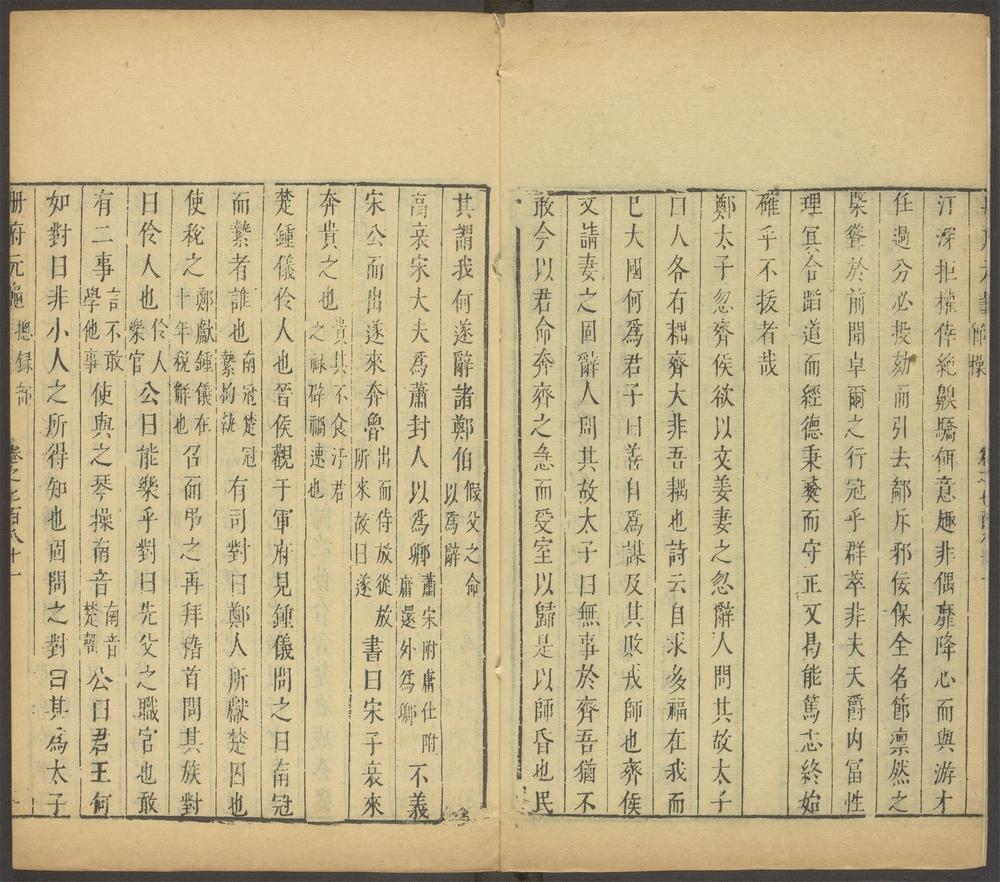 節操
汙深拒權倖絶驕伺意趣非偶靡降心而與游才
任過分必投劾而引去鄙斥邪佞保全名節凛然之
槩聳於前聞卓爾之行冠乎群萃非夫天爵内富性
理冥合蹈道而經德秉彝而守正又曷能篤志終始
確乎不拔者哉
鄭太子忽齊侯欲以文姜妻之忽辭人問其故太子
曰人各有耦齊大非吾耦也詩云自求多福在我而
已大國何為君子曰善自為謀及其敗戎師也齊侯
又請妻之固辭人問其故太子曰無事於齊吾猶不
敢今以君命奔齊之急而受室以歸是以師昏也民
其謂我何遂辭諸鄭伯假父之命以為辭
高哀宋大夫為蕭封人以為卿蕭宋附庸仕附庸還外為卿不義
宋公而出遂來奔魯出而待放從放所來故曰遂書曰宋子哀來
奔貴之也貴其不食汙君之祿碎禍速也
楚鍾儀伶人也晉侯觀于軍府見鍾儀問之曰南冠
而縶者誰也南冠楚冠縶拘執有司對曰鄭人所獻楚囚也
使稅之鄭獻鍾儀在十年稅解也召而弔之再拜稽首問其族對
曰伶人也伶人樂官公曰能樂乎對曰先父之職官也敢
有二事言不敢學他事使與之琴操南音南音楚聲公曰君王何
如對曰非小人之所得知也固問之對曰其為太子
册府元龜總録部 卷之七百八十一